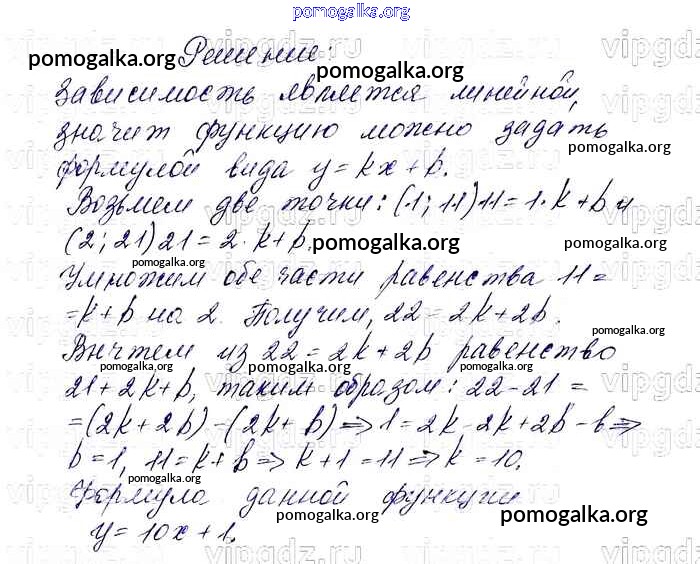 pomogalka.org
Решение:
pomogalka.org
pomogalka.org
Зависимость является линейной,
значит функцию можно задать
pomogalka.org
формулой вида y = kx + b.
Возьмем две точки: (1; 11) 11 = 1·k + b и
(2; 21) 21 = 2·k + b.
pomogalka.org
pomogalka.org
pomogalka.org
Умножим обе части равенства 11 =
= k + b на 2. Получим, 22 = 2k + 2b.
pomogalka.org
Вычтем из 22 = 2k + 2b равенство
pomogalka.org
pomogalka.org
21 + 2k + b, таким образом: 22 - 21 =
= (2k + 2b) - (2k + b) ⇒ 1 = 2k - 2k + 2b - b ⇒
b = 1, 11 = k + b ⇒ k + 1 = 11 ⇒ k = 10.
pomogalka.org
Формула данной функции
pomogalka.org
pomogalka.org
y = 10x + 1.